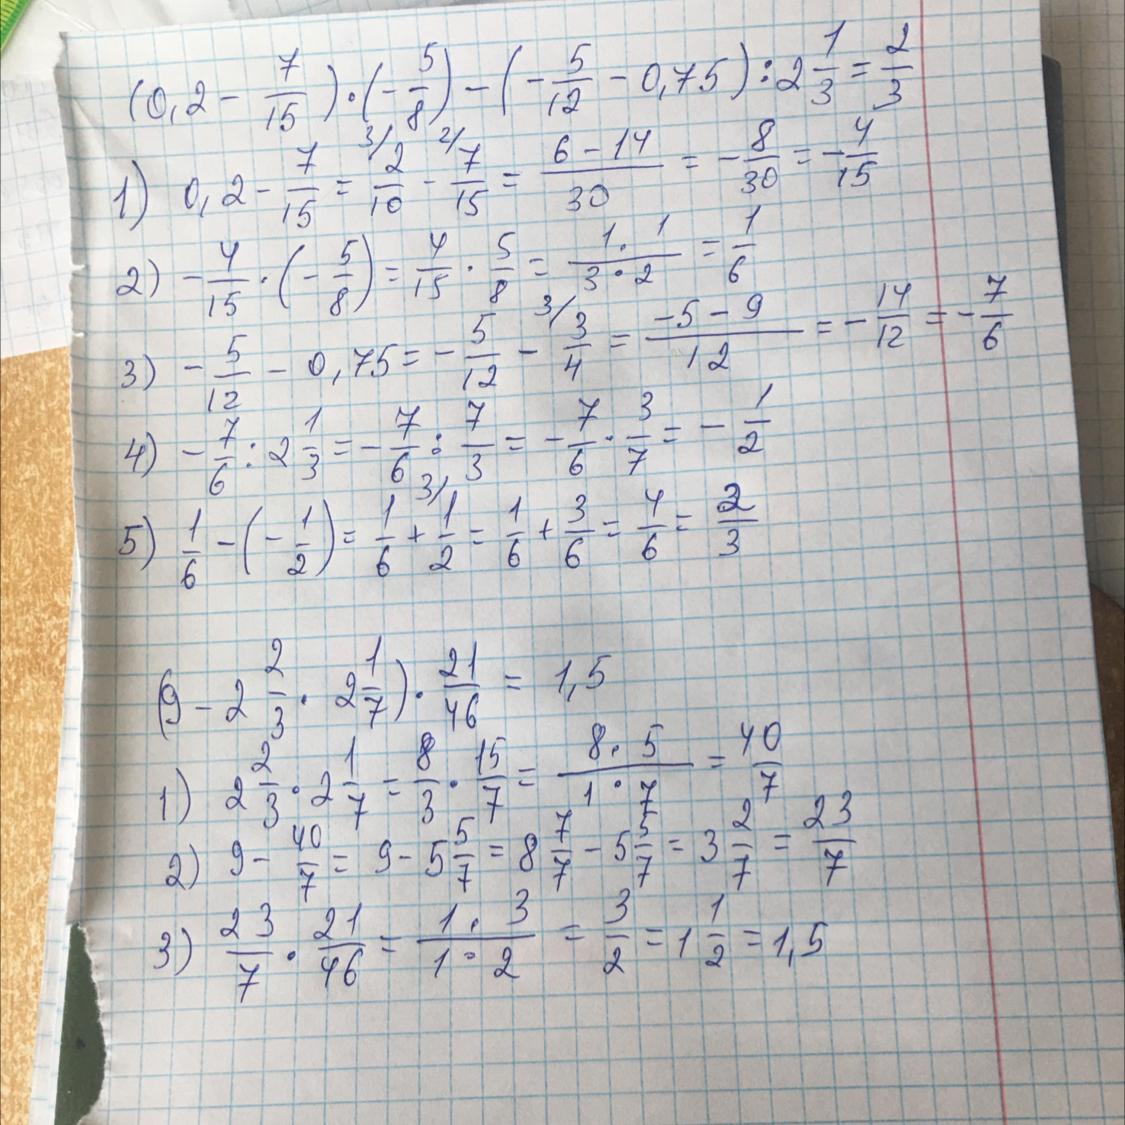 (0,2 - 7/15) · (-5/8) - (-5/12 - 0,75) : 2 1/3 = 2/3
1) 0,2 - 7/15 = 3/ 2/10 - 2/ 7/15 = (6 - 14)/30 = -8/30 = -4/15
2) -4/15 · (-5/8) = 4/15 · 5/8 = (1 · 1)/(3 · 2) = 1/6
3) -5/12 - 0,75 = -5/12 - 3/ 3/4 = (-5 - 9)/12 = -14/12 = -7/6
4) -7/6 : 2 1/3 = -7/6 : 7/3 = -7/6 · 3/7 = -1/2
5) 1/6 - (-1/2) = 1/6 + 3/ 1/2 = 1/6 + 3/6 = 4/6 = 2/3
(9 - 2 2/3 · 2 1/7) · 21/46 = 1,5
1) 2 2/3 · 2 1/7 = 8/3 · 15/7 = (8 · 5)/(1 · 7) = 40/7
2) 9 - 40/7 = 9 - 5 5/7 = 8 7/7 - 5 5/7 = 3 2/7 = 23/7
3) 23/7 · 21/46 = (1 · 3)/(1 · 2) = 3/2 = 1 1/2 = 1,5